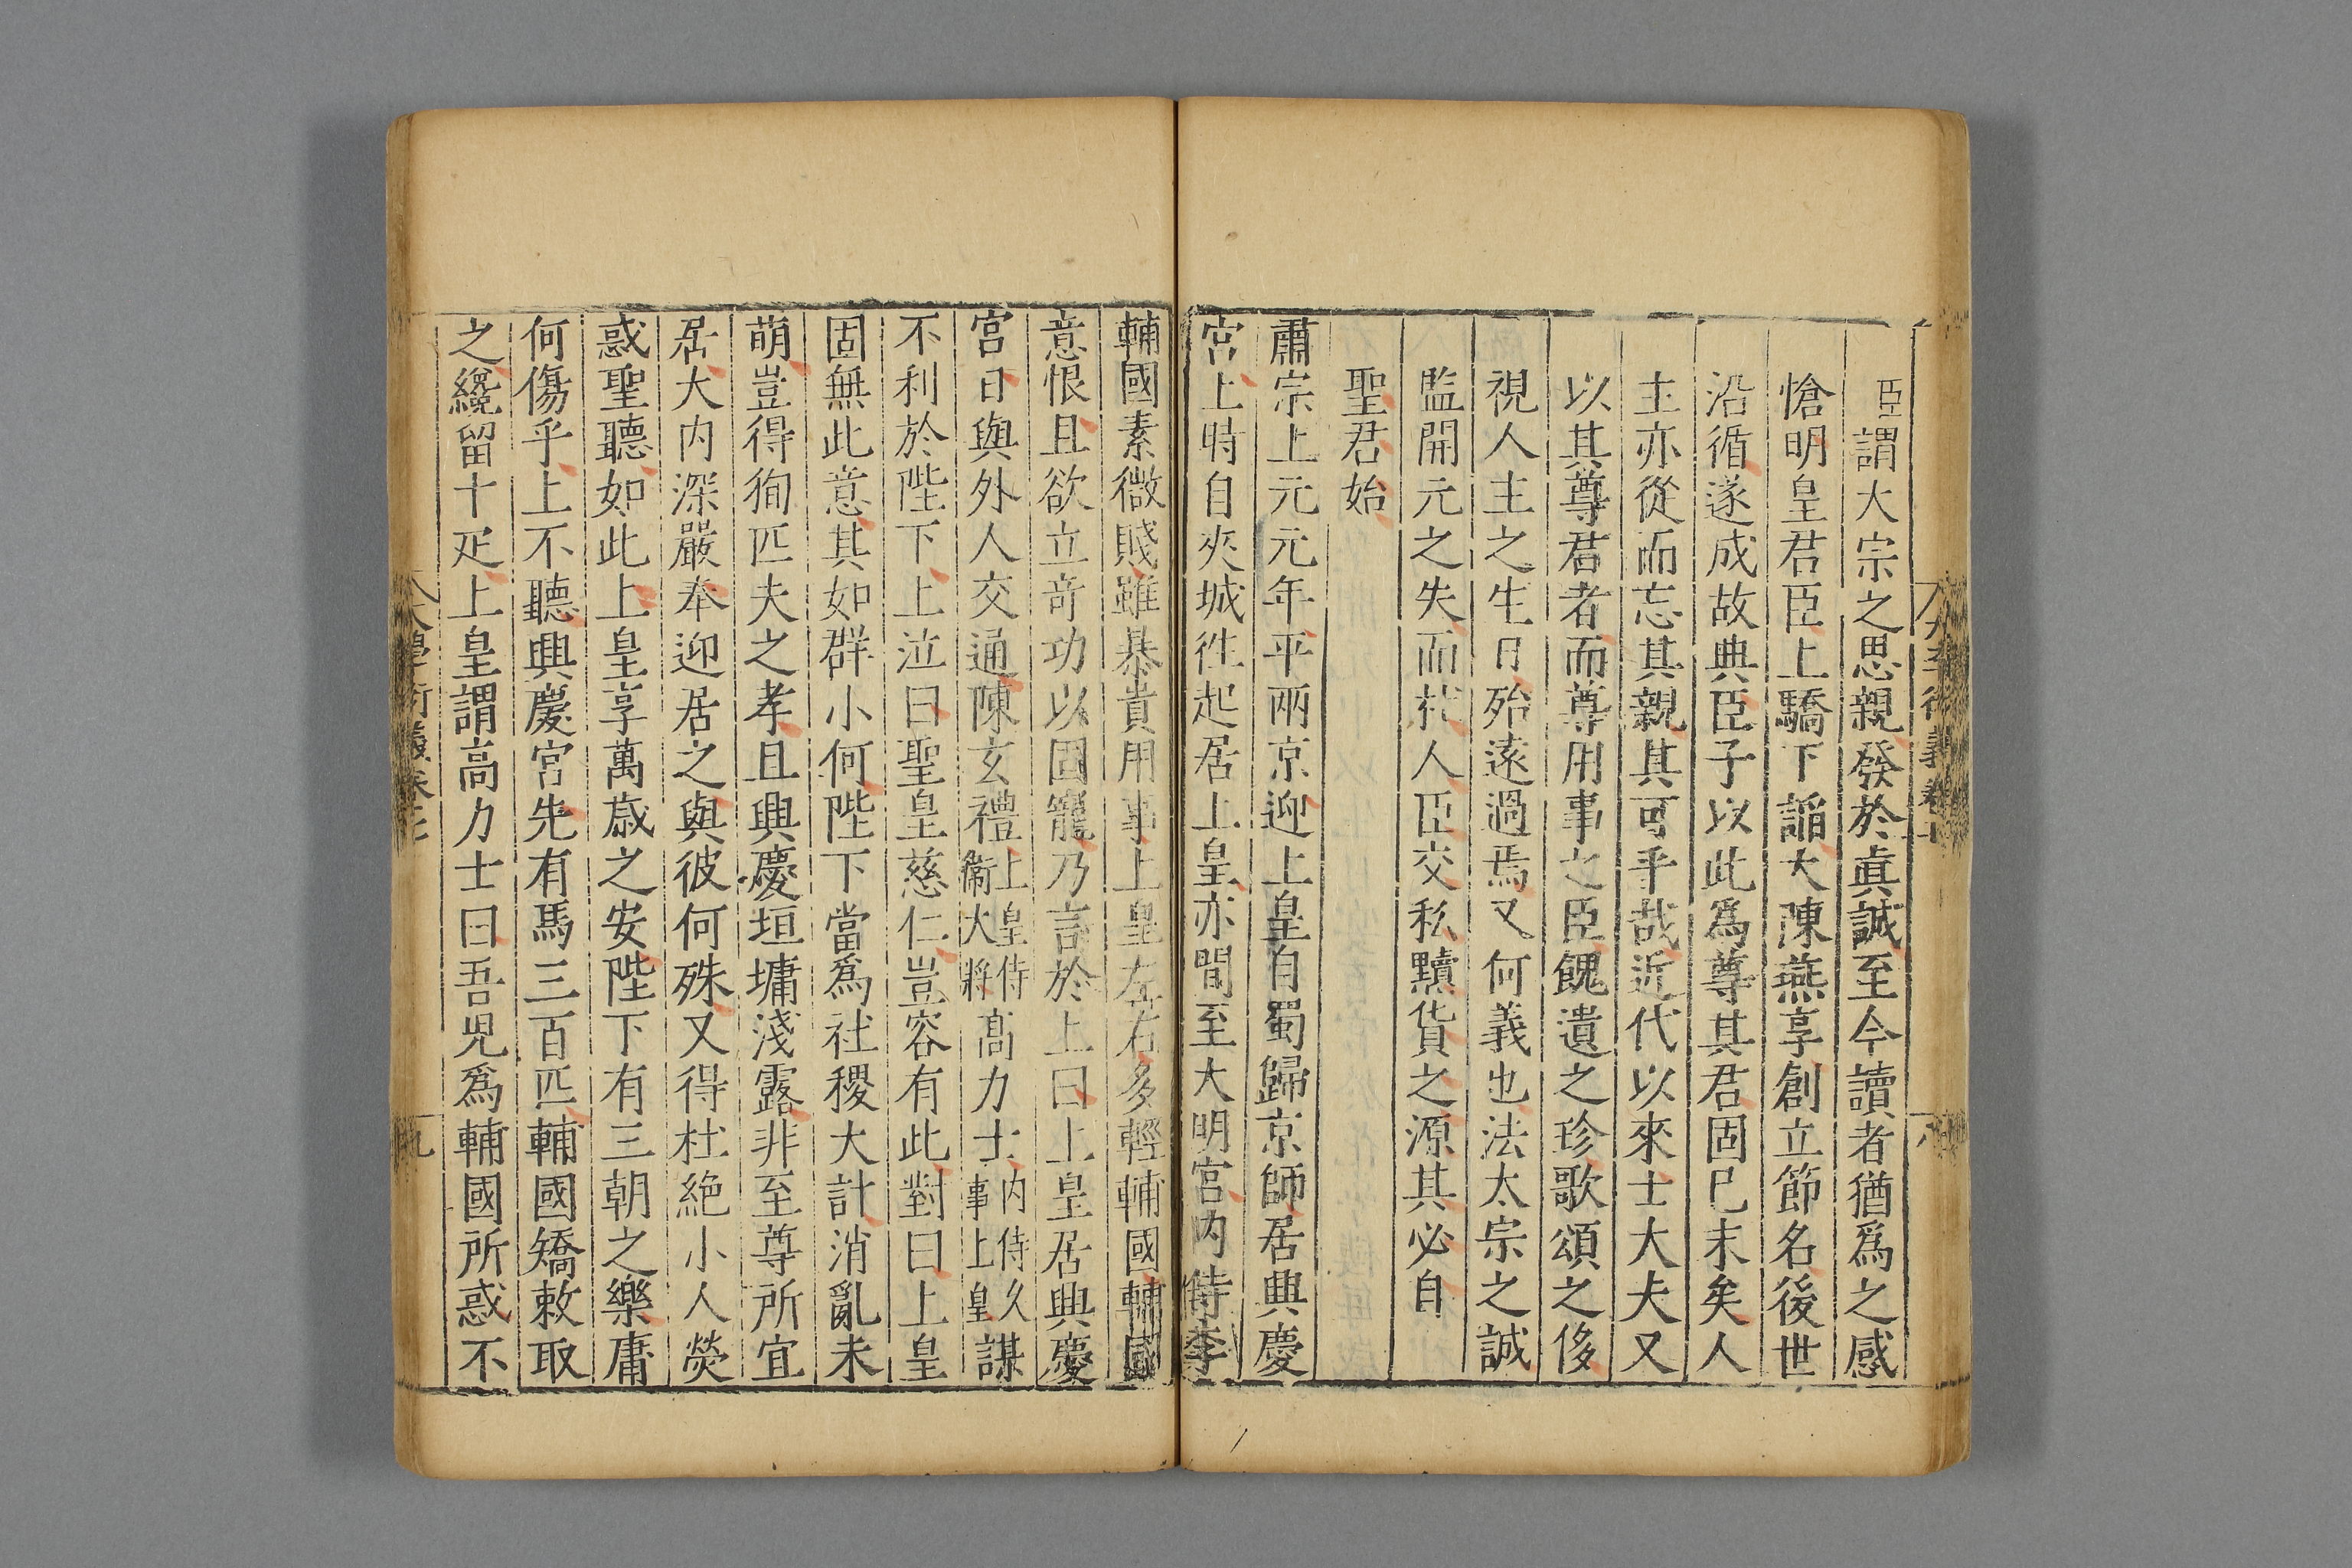 臣謂大宗之思親發於真誠至今讀者猶爲之感
愴明皇君臣上驕下謟大陳燕享創立節名後世
沿循遂成故典臣子以此爲尊其君固已末矣人
主亦從而忘其親其可乎哉近代以來士大夫又
以其尊君者而尊用事之臣餽遺之珍歌頌之侈
視人主之生日殆遠過焉又何義也法太宗之誠
監開元之失而杜人臣交私黷貨之源其必自
聖君始
肅宗上元元年平兩京迎上皇自蜀歸京師居興慶
宮上時自夾城徃起居上皇亦間至大明宮内侍李
輔國素微賤雖暴貴用事上皇左右多輕輔國輔國
意恨且欲立竒功以固寵乃言於上曰上皇居興慶
宮日與外人交通陳玄禮上皇侍衞大將高力士内侍久事上皇謀
不利於陛下上泣曰聖皇慈仁豈容有此對曰上皇
固無此意其如群小何陛下當爲社稷大計消亂未
萌豈得徇匹夫之孝且興慶垣墉淺露非至尊所宜
居大内深嚴奉迎居之與彼何殊又得杜絶小人熒
惑聖聽如此上皇享萬歳之安陛下有三朝之樂庸
何傷乎上不聽興慶宮先有馬三百匹輔國矯敕取
之纔留十疋上皇謂高力士曰吾児爲輔國所惑不
大學衍義卷七
九